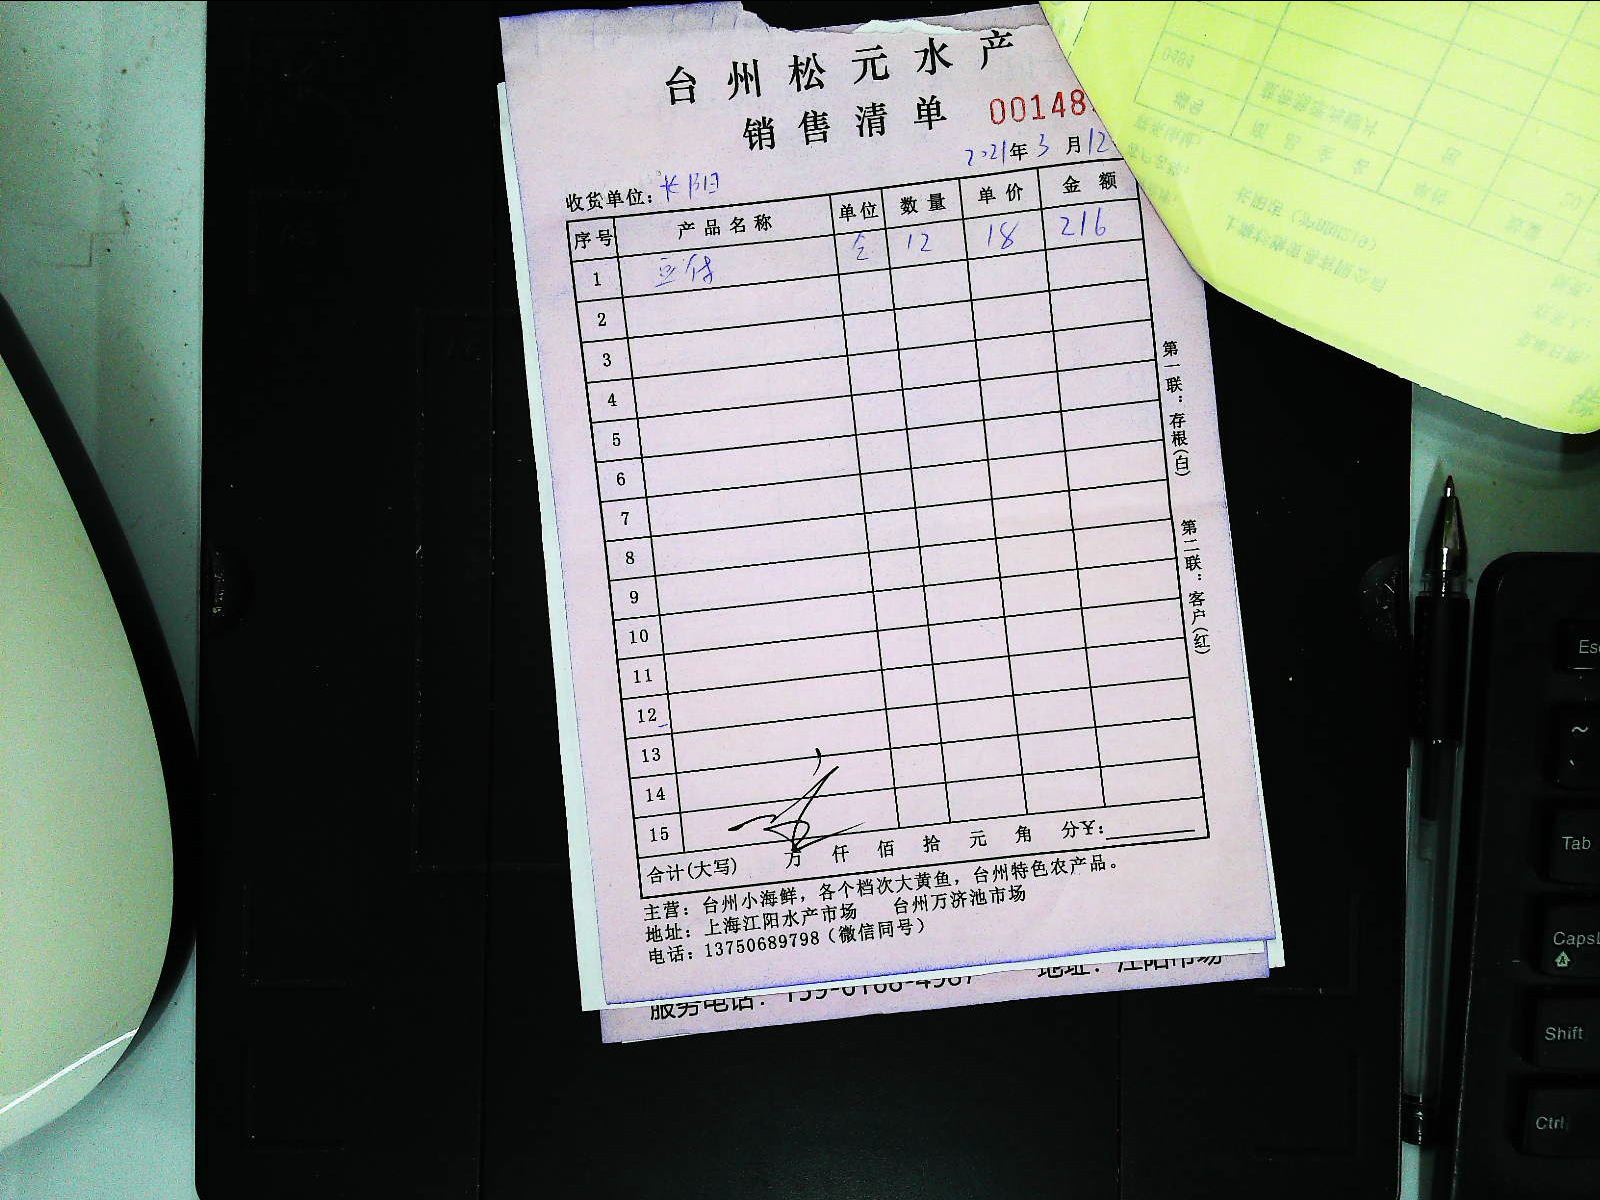 台州松元水产
销售清单 00148
2021年3月12
收货单位:
序号 产品名称 单位 数量 单价 金额
1 12 18 216
2
3
4
5
6
7
8
9
10
11
12
13
14
15
合计(大写) 万 仟 佰 拾 元 角 分¥:
主营:台州小海鲜,各个档次大黄鱼,台州特色农产品。
地址:上海江阳水产市场 台州万济池市场
电话:13750689798(微信同号)
第一联:存根(白)
第二联:客户(红)
服务电话: 地址:江阳市场
Esc
~
Tab
Caps
Shift
Ctrl